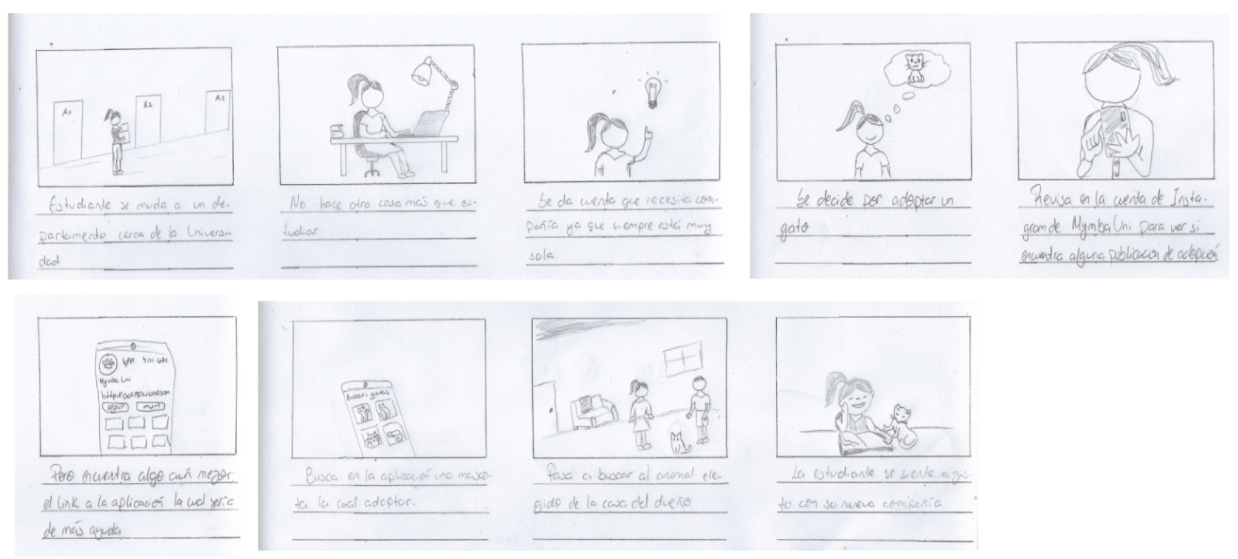 A1
A2
A3
Estudiante se muda a un de-
partamento cerca de la Universi-
dad
No hace otra cosa más que es-
tudiar
Se da cuenta que necesita com-
pañía ya que siempre está muy
sola
Se decide por adoptar un
gato
Revisa en la cuenta de Insta-
gram de Mymba Uni para ver si
encuentra alguna publicación de adopción
Mymba Uni
Pero encuentra algo aún mejor
el link a la aplicación la cual sería
de más ayuda
Buscar: gatos
Busca en la aplicación una masco-
ta la cual adoptar.
Pasa a buscar al animal ele-
gido de la casa del dueño.
La estudiante se siente a gus-
to con su nueva compañía